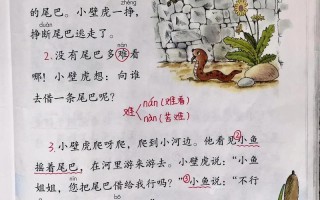 的尾巴。小壁虎一挣，
挣断尾巴逃走了。
2.没有尾巴多难看
哪！小壁虎想：向谁
去借一条尾巴呢？
难 nán（难看）
nàn（苦难）
3.小壁虎爬呀爬，爬到小河边。他看见②小鱼
摇着尾巴，在河里游来游去。小壁虎说：“小鱼
姐姐，您把尾巴借给我行吗？”③小鱼说：“不行